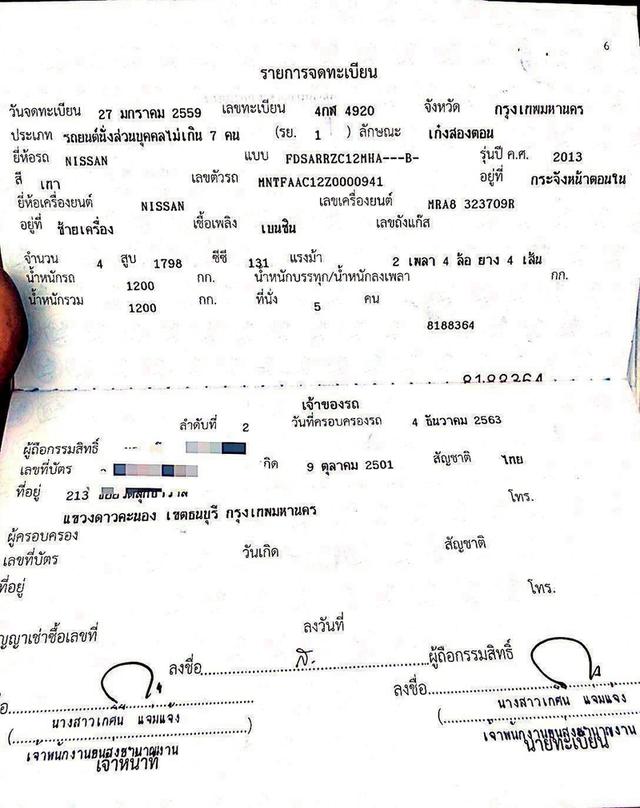 6
รายการจดทะเบียน
วันจดทะเบียน 27 มกราคม 2559 เลขทะเบียน 4กฬ 4920 จังหวัด กรุงเทพมหานคร
ประเภท รถยนต์นั่งส่วนบุคคลไม่เกิน 7 คน (รย. 1 ) ลักษณะ เก๋งสองตอน
ยี่ห้อรถ NISSAN แบบ FDSARRZC12MHA---B- รุ่นปี ค.ศ. 2013
สี เทา เลขตัวรถ MNTFAAC12Z0000941 อยู่ที่ กระจังหน้าตอนใน
ยี่ห้อเครื่องยนต์ NISSAN เลขเครื่องยนต์ MRA8 323709R
อยู่ที่ ซ้ายเครื่อง เชื้อเพลิง เบนซิน เลขถังแก๊ส
จำนวน 4 สูบ 1798 ซีซี 131 แรงม้า 2 เพลา 4 ล้อ ยาง 4 เส้น
น้ำหนักรถ 1200 กก. น้ำหนักบรรทุก/น้ำหนักลงเพลา กก.
น้ำหนักรวม 1200 กก. ที่นั่ง 5 คน
8188364
8188364
เจ้าของรถ
ลำดับที่ 2 วันที่ครอบครองรถ 4 ธันวาคม 2563
ผู้ถือกรรมสิทธิ์
เลขที่บัตร กิด 9 ตุลาคม 2501 สัญชาติ ไทย
ที่อยู่ 213 โทร.
แขวงดาวคะนอง เขตธนบุรี กรุงเทพมหานคร
ผู้ครอบครอง
เลขที่บัตร วันเกิด สัญชาติ
ที่อยู่ โทร.
ญญาเช่าซื้อเลขที่ ลงวันที่
ลงชื่อ ผู้ถือกรรมสิทธิ์
ลงชื่อ
นางสาวเกศิน แจ่มแจ้ง นางสาวเกศิน แจ่มแจ้ง
เจ้าพนักงานขนส่งชำนาญงาน เจ้าพนักงานขนส่งชำนาญงาน
เจ้าหน้าที่ นายทะเบียน